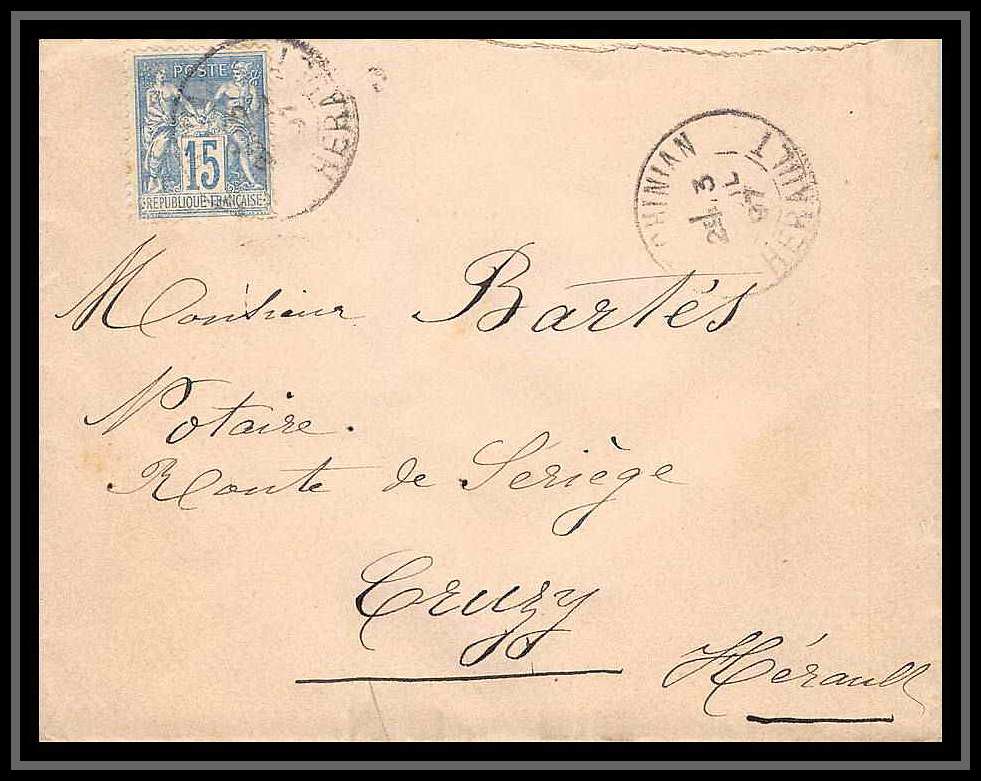 POSTE
15
REPUBLIQUE FRANÇAISE
HERAULT
HINIAN
HERAULT
Monsieur Bartés
Notaire.
Route de Sériège
Cruzy
Hérault